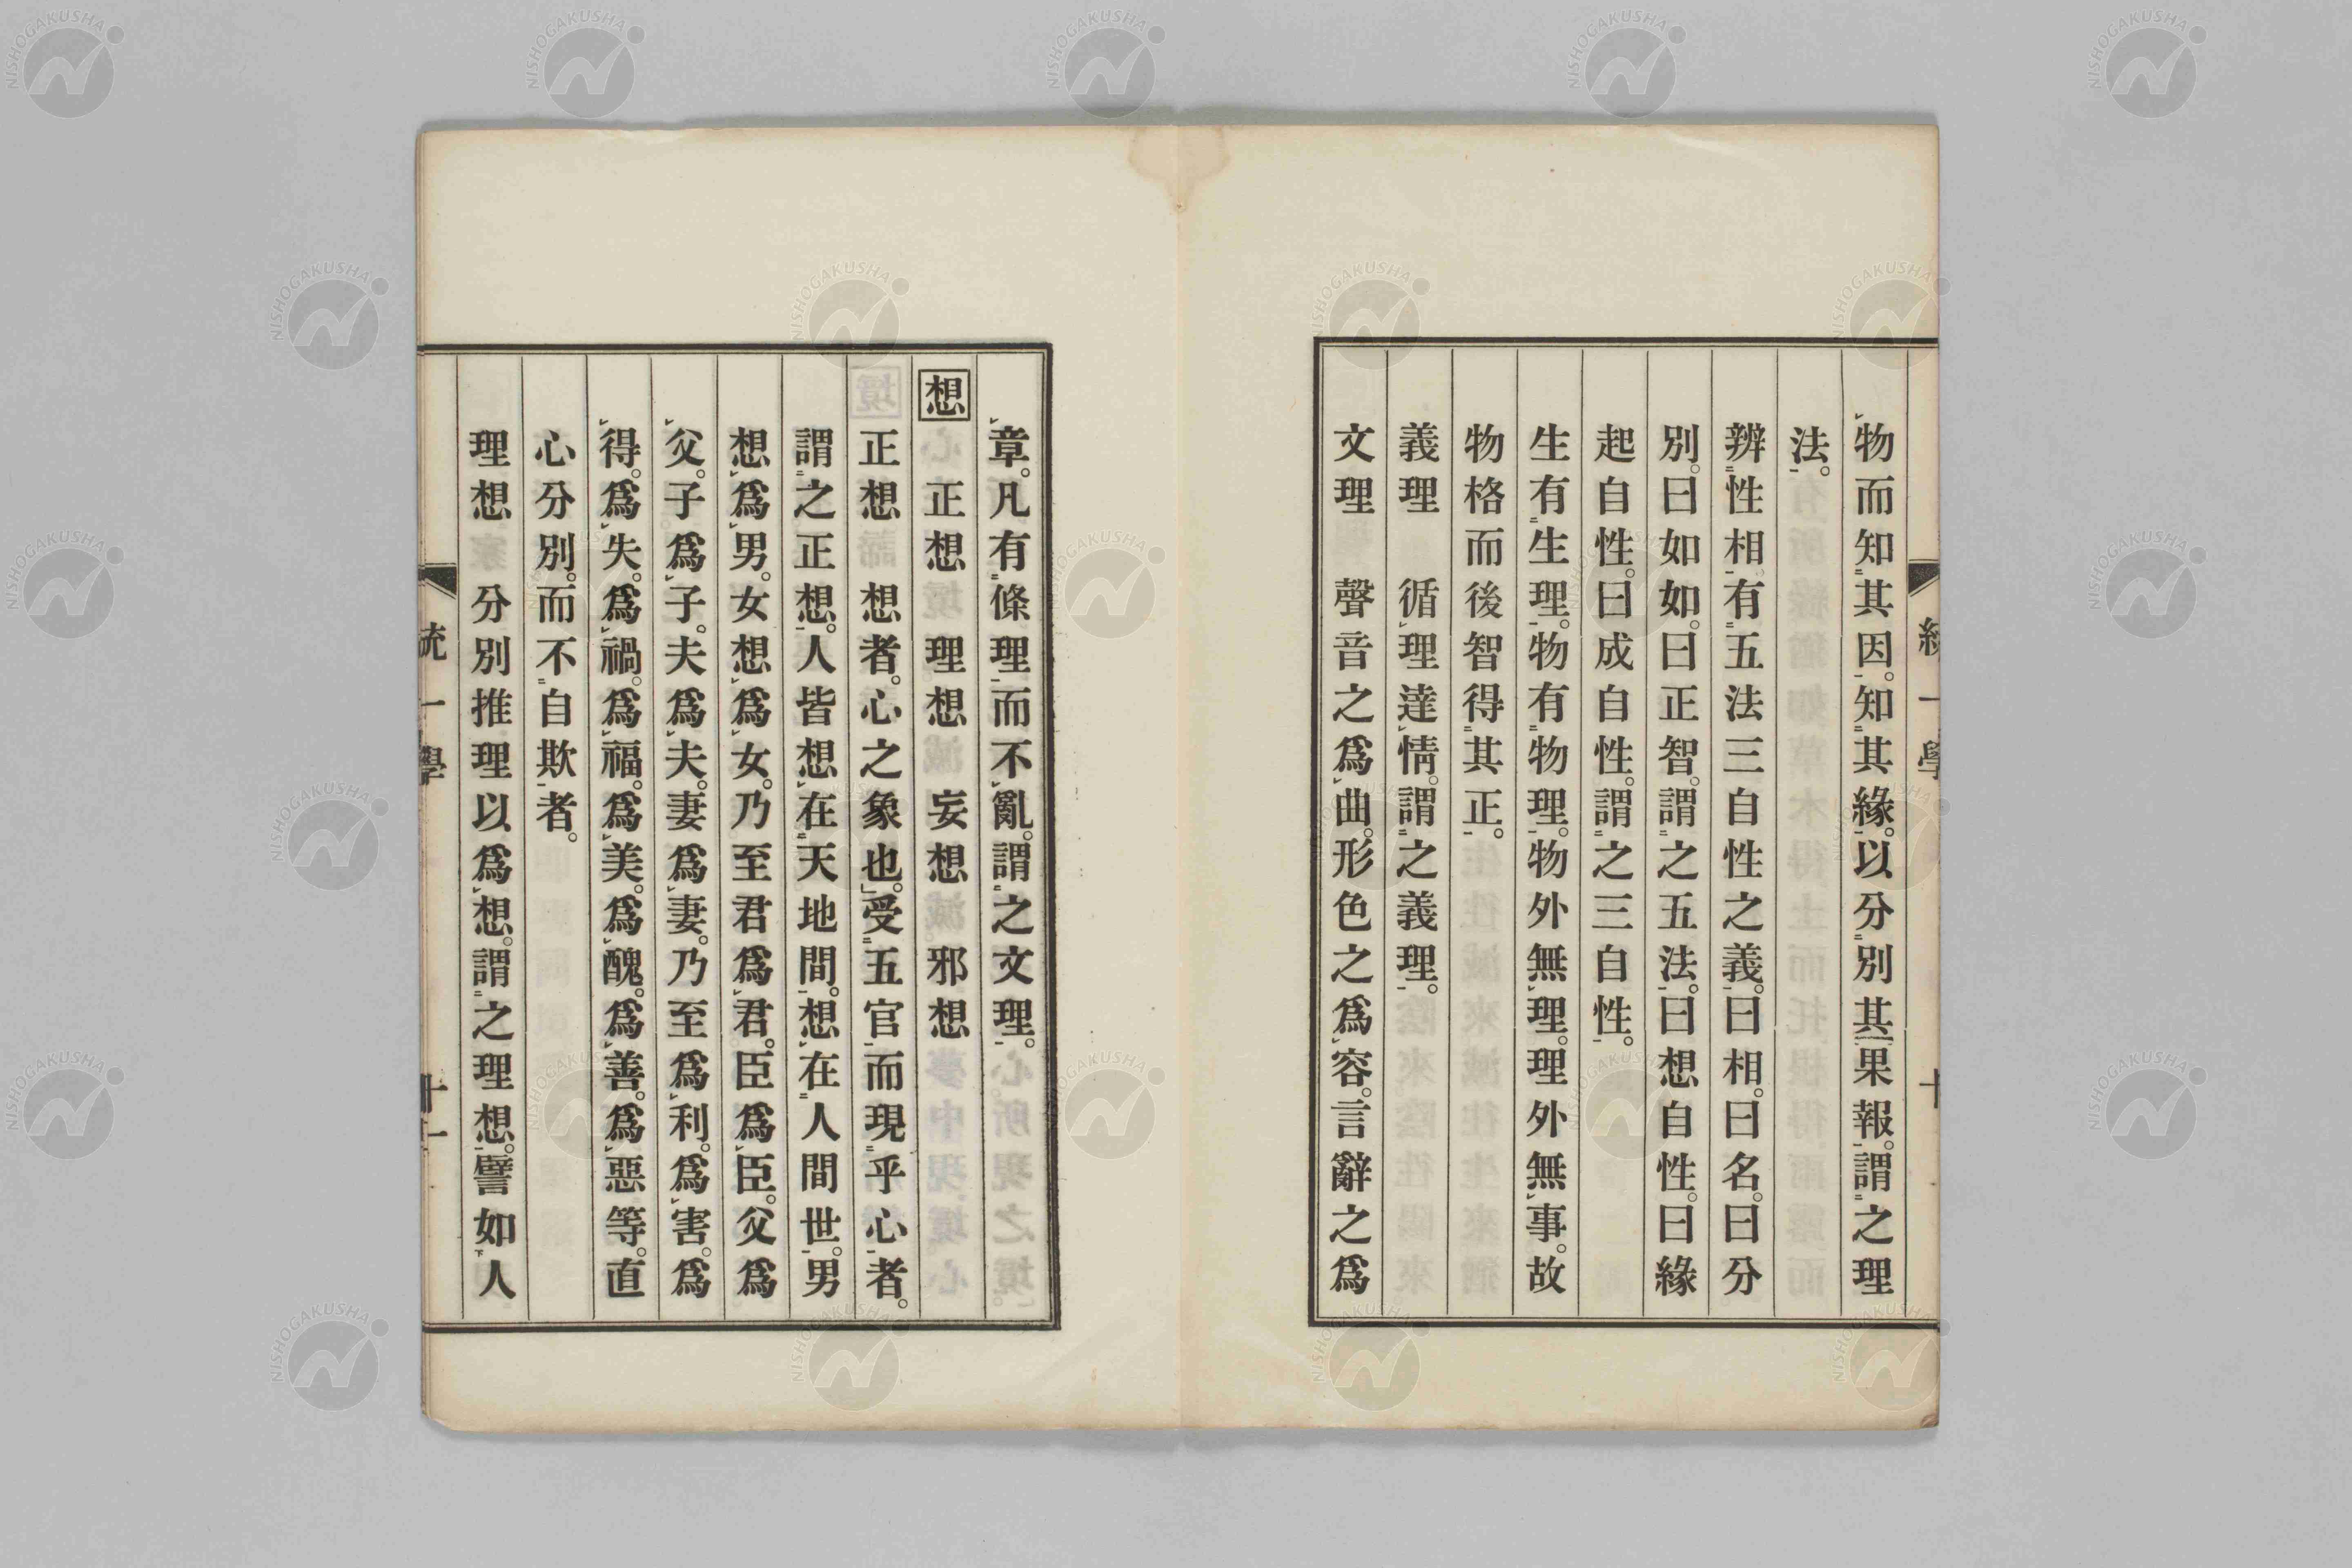 物而知其因。知其緣。以分別其果報。謂之理
法。
辨性相有五法三自性之義。曰相。曰名。曰分
別。曰如如。曰正智。謂之五法。曰想自性。曰緣
起自性。曰成自性。謂之三自性。
生有生理。物有物理。物外無理。理外無事。故
物格而後智得其正。
義理　循理達情。謂之義理。
文理　聲音之爲曲。形色之爲容。言辭之爲
章。凡有條理而不亂。謂之文理。
想　正想　理想　妄想　邪想
正想　想者。心之象也。受五官而現乎心者。
謂之正想。人皆想在天地間。想在人間世。男
想爲男。女想爲女。乃至君爲君。臣爲臣。父爲
父。子爲子。夫爲夫。妻爲妻。乃至爲利。爲害。爲
得。爲失。爲禍。爲福。爲美。爲醜。爲善。爲惡等。直
心分別。而不自欺者。
理想　分別推理以爲想。謂之理想。譬如人
統一學
十一
NISHOGAKUSHA